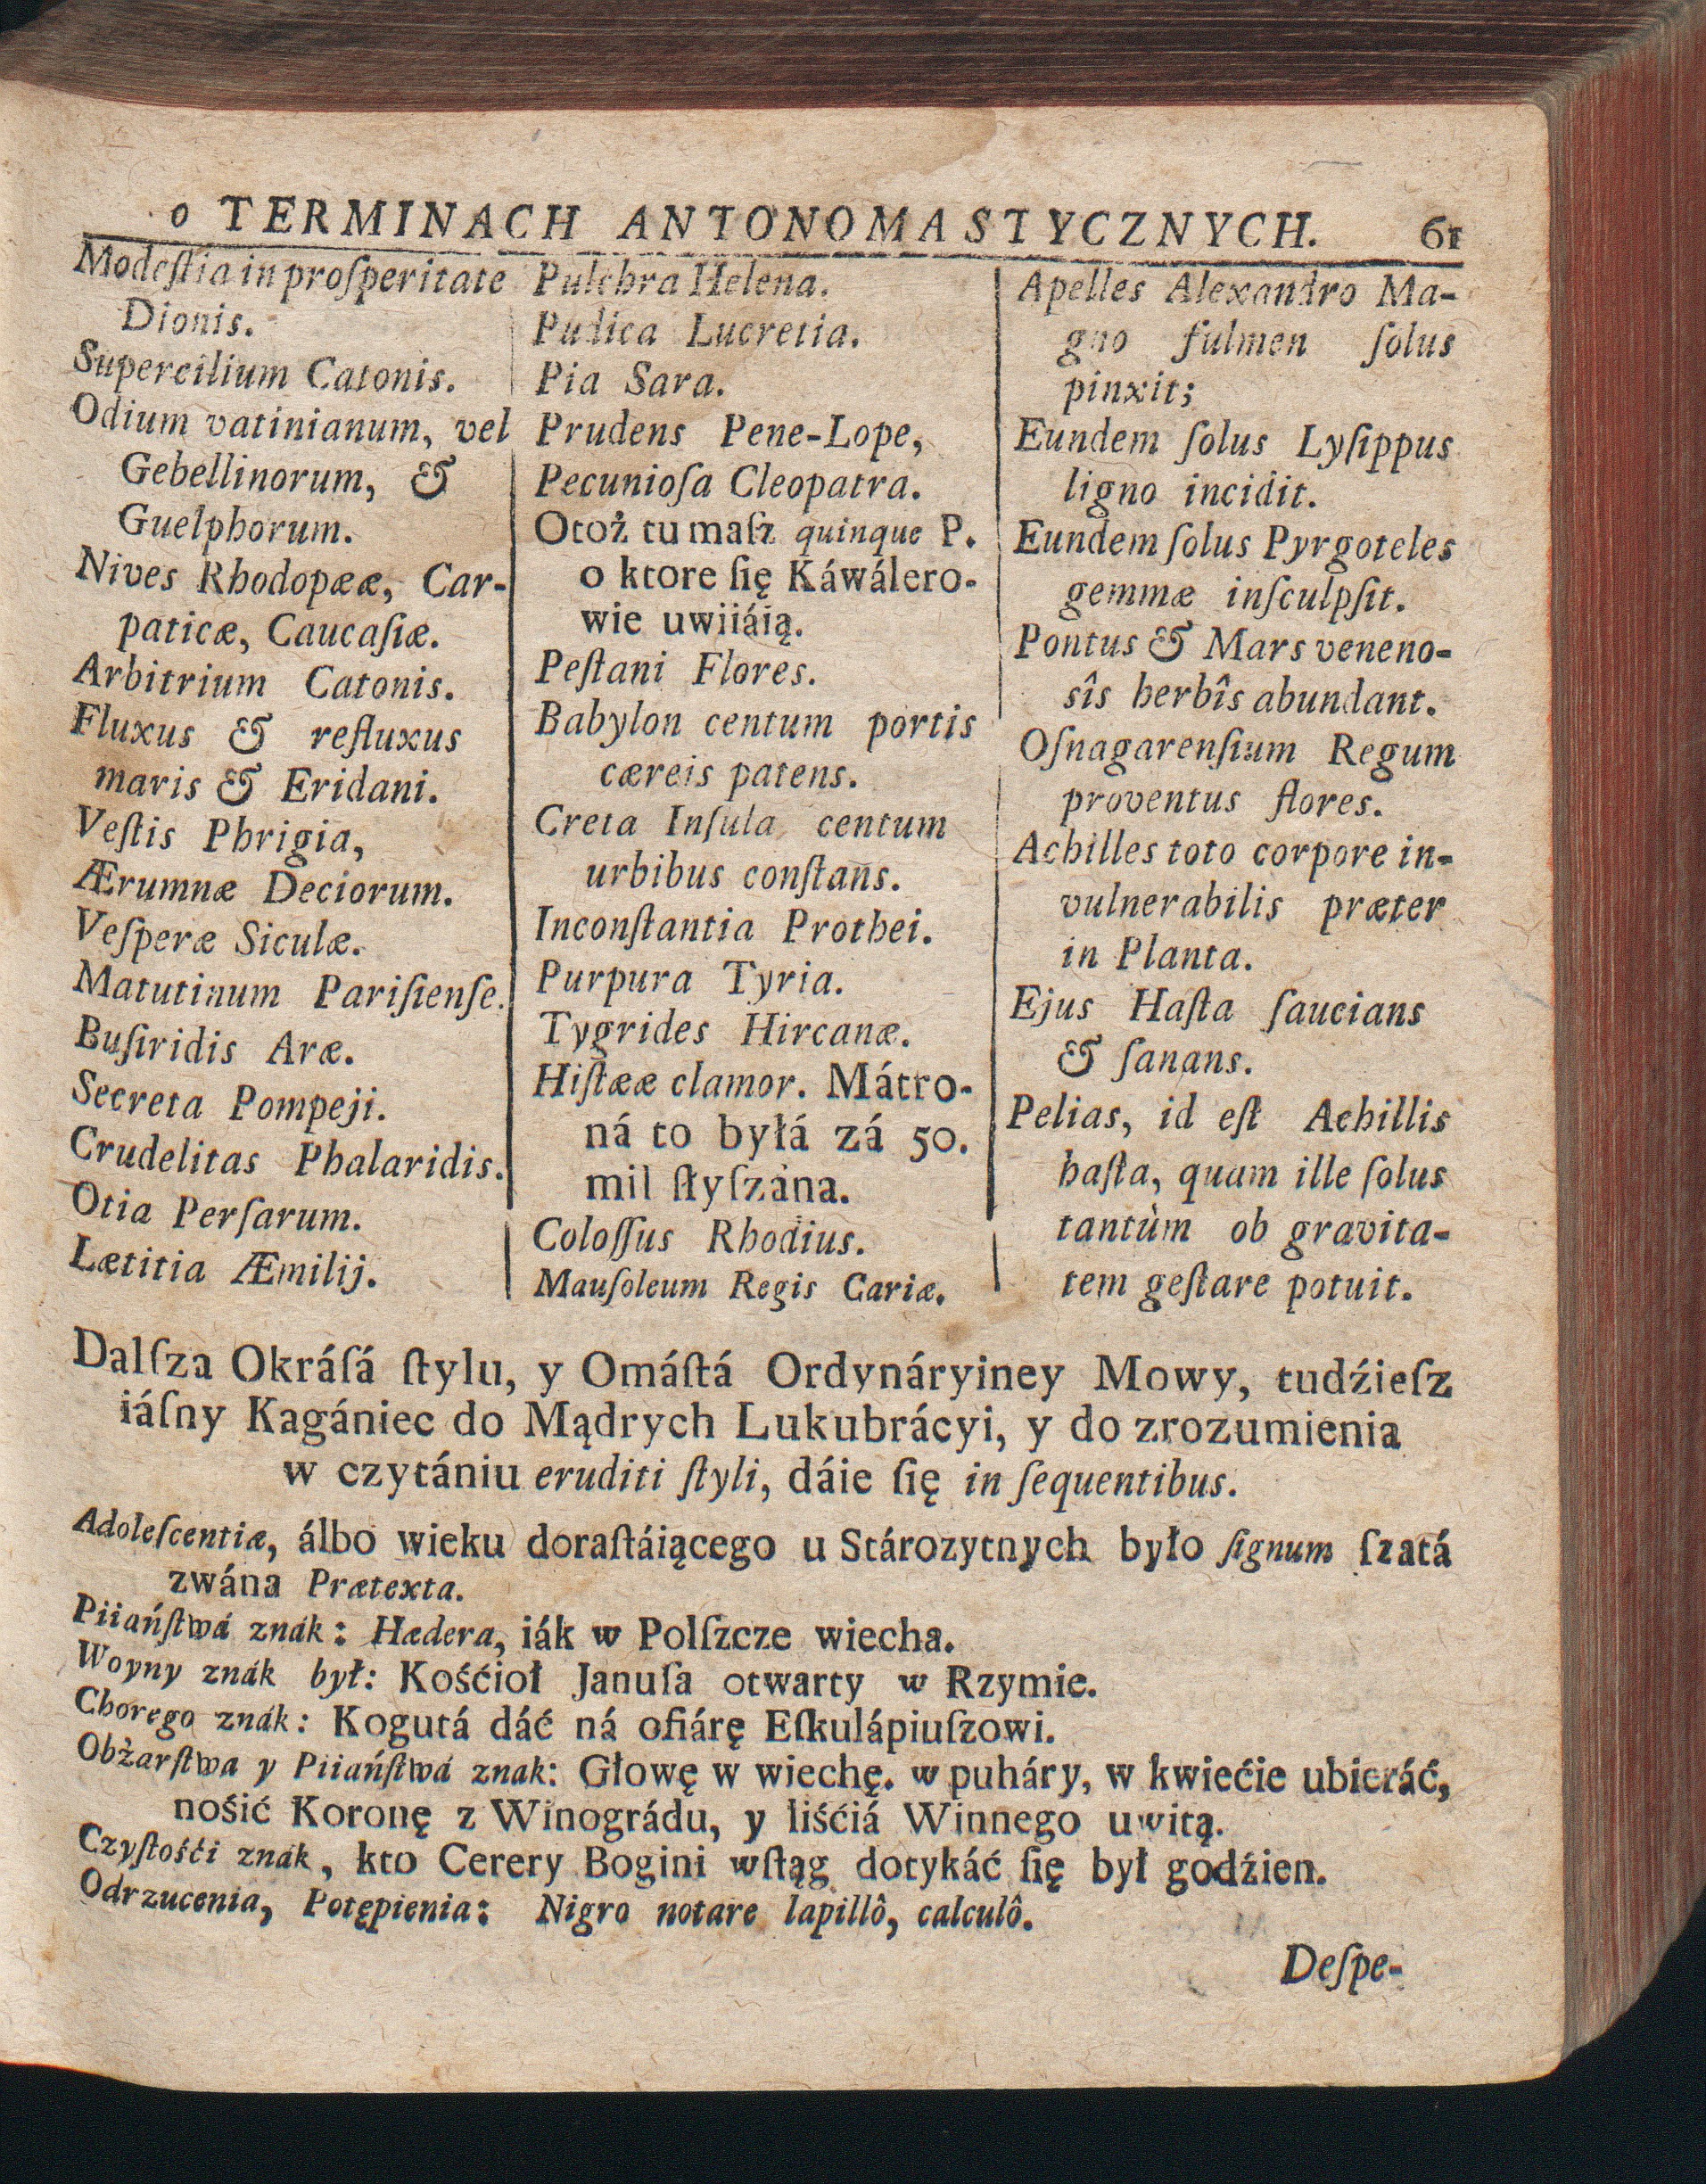 o TERMINACH ANTONOMASTYCZNYCH. 61
Modeſtia in proſperitate
Dionis.
Supercilium Catonis.
Odium vatinianum, vel
Gebellinorum, &
Guelphorum.
Nives Rhodopææ, Car-
paticæ, Caucaſiæ.
Arbitrium Catonis.
Fluxus & refluxus
maris & Eridani.
Veſtis Phrigia,
Ærumnæ Deciorum.
Veſperæ Siculæ.
Matutinum Pariſienſe.
Buſiridis Aræ.
Secreta Pompeji.
Crudelitas Phalaridis.
Otia Perſarum.
Lætitia Æmilij.
Pulchra Helena.
Pudica Lucretia.
Pia Sara.
Prudens Pene-Lope,
Pecunioſa Cleopatra.
Otoż tu maſz quinque P.
o ktore ſię Káwálero-
wie uwiiáią.
Peſtani Flores.
Babylon centum portis
cæreis patens.
Creta Inſula centum
urbibus conſtans.
Inconſtantia Prothei.
Purpura Tyria.
Tygrides Hircanæ.
Hiſtææ clamor. Mátro-
ná to byłá zá 50.
mil ſłyſzána.
Coloſſus Rhodius.
Mauſoleum Regis Cariæ.
Apelles Alexandro Ma-
gno fulmen ſolus
pinxit;
Eundem ſolus Lyſippus
ligno incidit.
Eundem ſolus Pyrgoteles
gemmæ inſculpſit.
Pontus & Mars veneno-
sîs herbîs abundant.
Oſnagarenſium Regum
proventus flores.
Achilles toto corpore in-
vulnerabilis præter
in Planta.
Ejus Haſta ſaucians
& ſanans.
Pelias, id eſt Achillis
haſta, quam ille ſolus
tantùm ob gravita-
tem geſtare potuit.
Dalſza Okráſá ſtylu, y Omáſtá Ordynáryiney Mowy, tudźieſz
iáſny Kagániec do Mądrych Lukubrácyi, y do zrozumienia
w czytániu eruditi ſtyli, dáie ſię in ſequentibus.
Adoleſcentiæ, álbo wieku doraſtáiącego u Stározytnych było ſignum ſzatá
zwána Prætexta.
Piiańſtwá znák: Hædera, iák w Polſzcze wiecha.
Woyny znák był: Kośćioł Januſa otwarty w Rzymie.
Chorego znák: Kogutá dáć ná ofiárę Eſkulápiuſzowi.
Obżarſtwa y Piiańſtwá znak: Głowę w wiechę. w puháry, w kwiećie ubieráć,
nośić Koronę z Winográdu, y liśćiá Winnego uwitą.
Czyſtośći znák, kto Cerery Bogini wſtąg dotykáć ſię był godźien.
Odrzucenia, Potępienia: Nigro notare lapillô, calculô.
Deſpe-